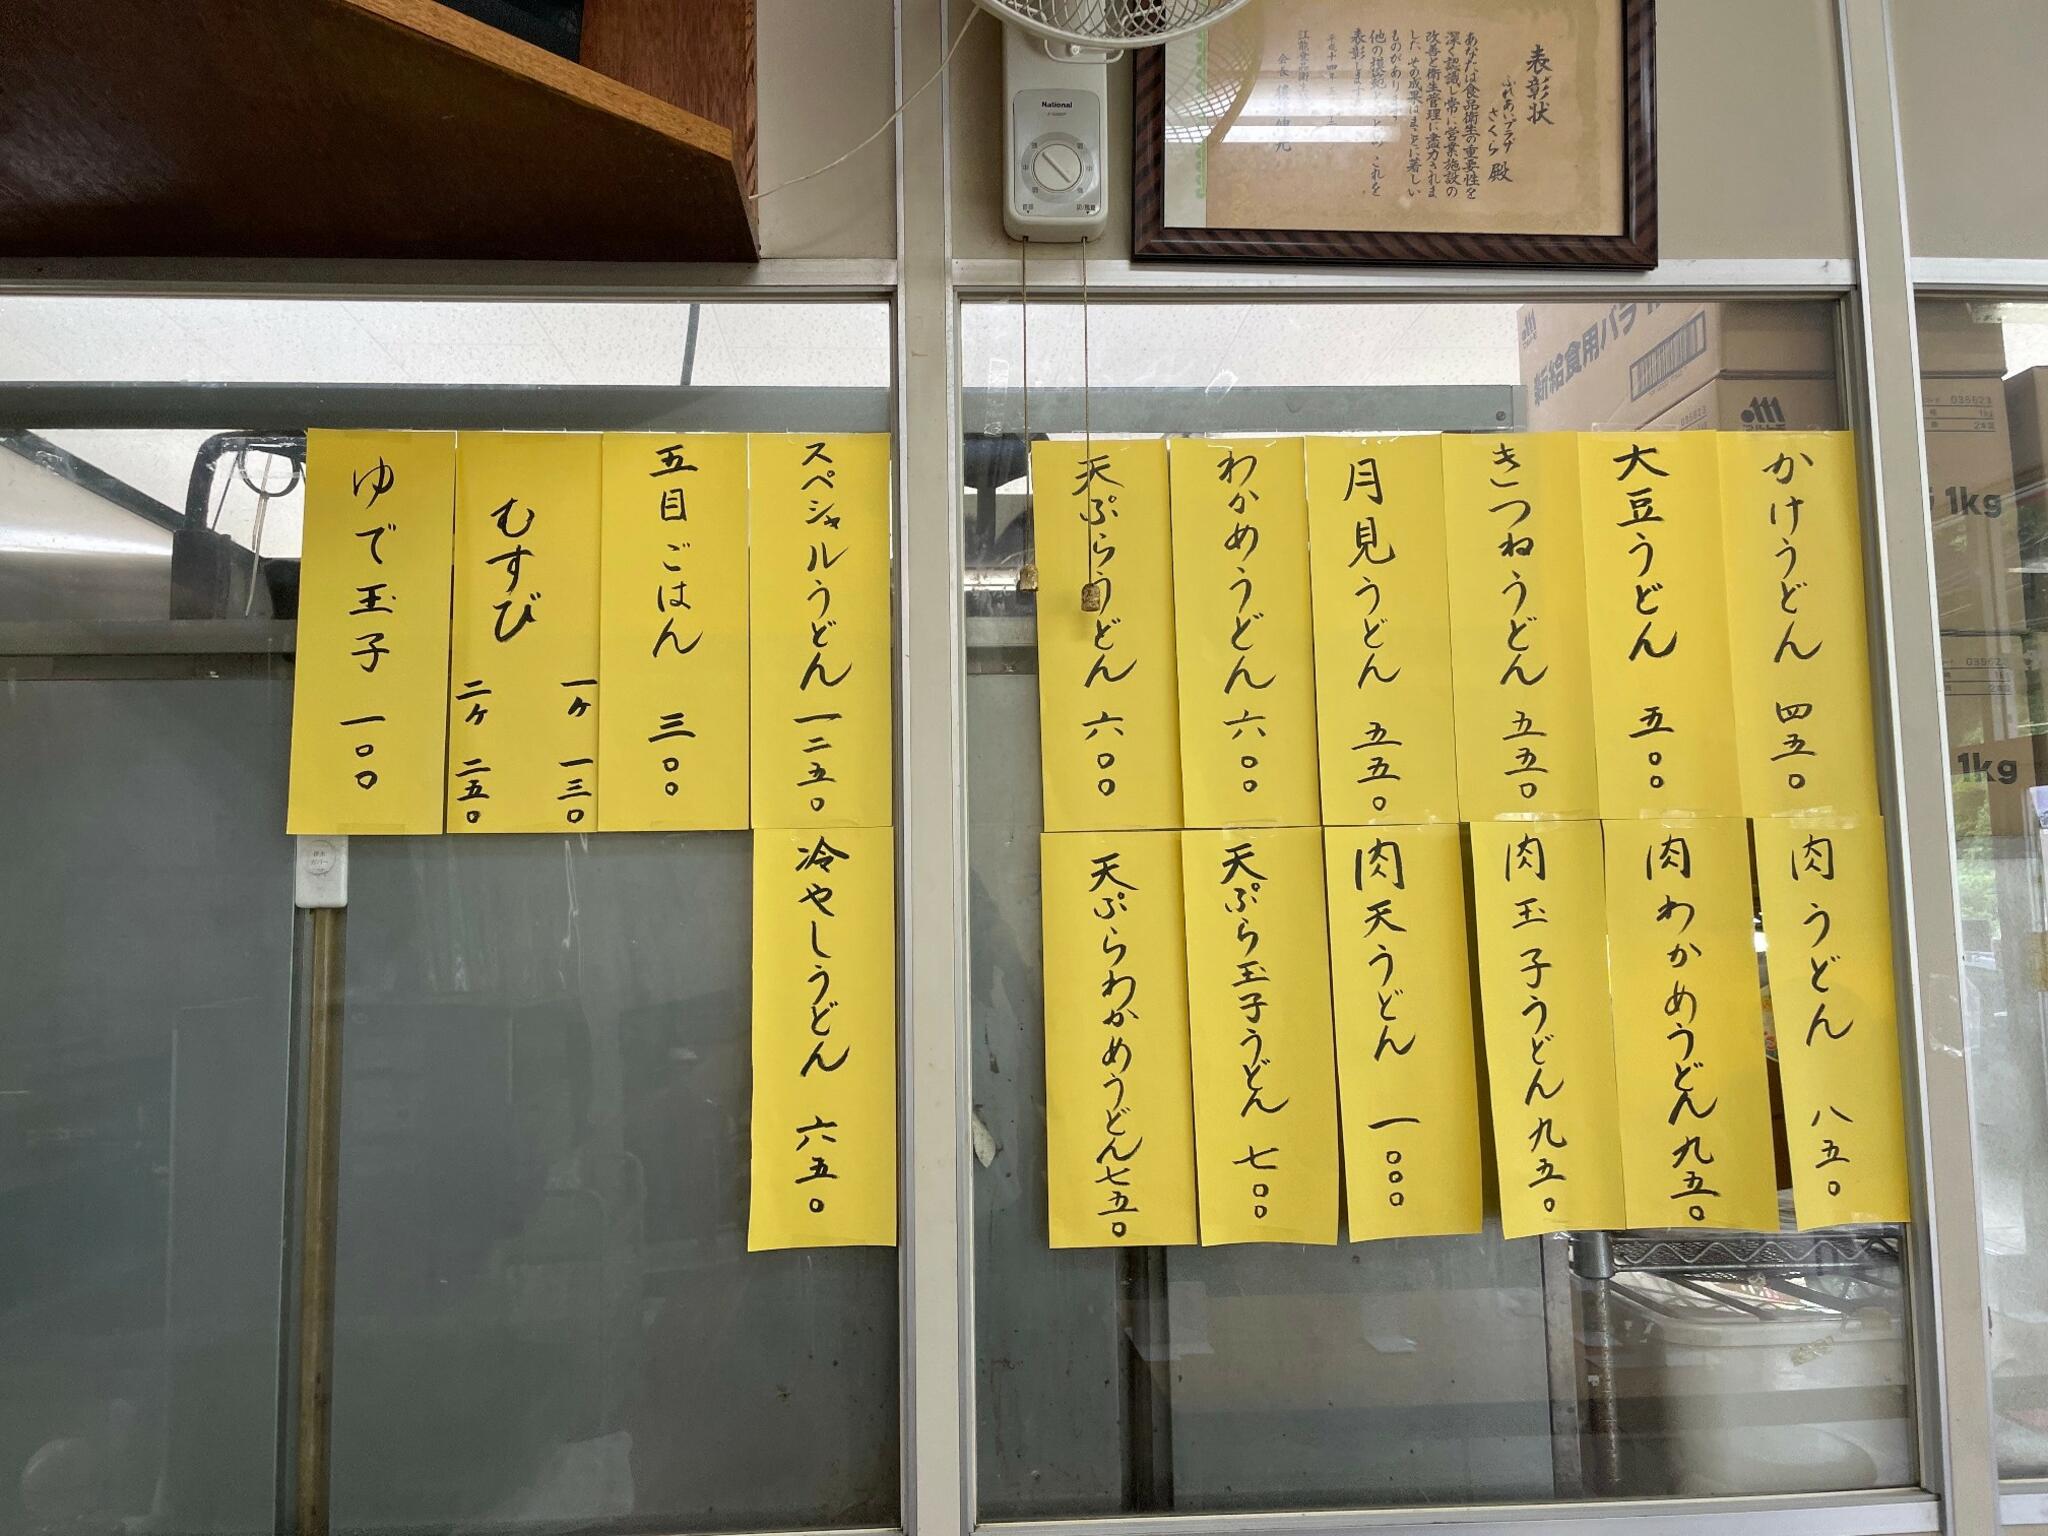 表彰状
ふれあいプラザ
さくら 殿
あなたは食品衛生の重要性を
深く認識し常に営業施設の
改善と衛生管理に尽力されま
した その成果はまことに著しい
ものがあります
他の模範 これを
表彰します
平成十四年
会長
National
新給食用バラ
かけうどん 四五〇
大豆うどん 五〇〇
きつねうどん 五五〇
月見うどん 五五〇
わかめうどん 六〇〇
天ぷらうどん 六〇〇
肉うどん 八五〇
肉わかめうどん 九五〇
肉玉子うどん 九五〇
肉天うどん 一〇〇〇
天ぷら玉子うどん 七〇〇
天ぷらわかめうどん 七五〇
スペシャルうどん 一二五〇
五目ごはん 三〇〇
むすび
一ヶ 一三〇
二ヶ 二五〇
ゆで玉子 一〇〇
冷やしうどん 六五〇
035623
1kg
2本
1kg
035623
1kg